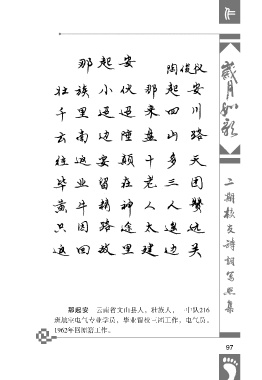 那起安
陶俊仪
壮族小伙那起安
千里迢迢来四川
云南边陲盘山路
往返要颠十多天
毕业留在老三团
黄牛精神人人赞
只因路途太遥远
返回故里建边关
那起安 云南省文山县人。壮族人， 一中队216
班航空电气专业学员。毕业留校三团工作。电气员。
1962年回原籍工作。
岁月如歌
二期校友诗词写照集
97